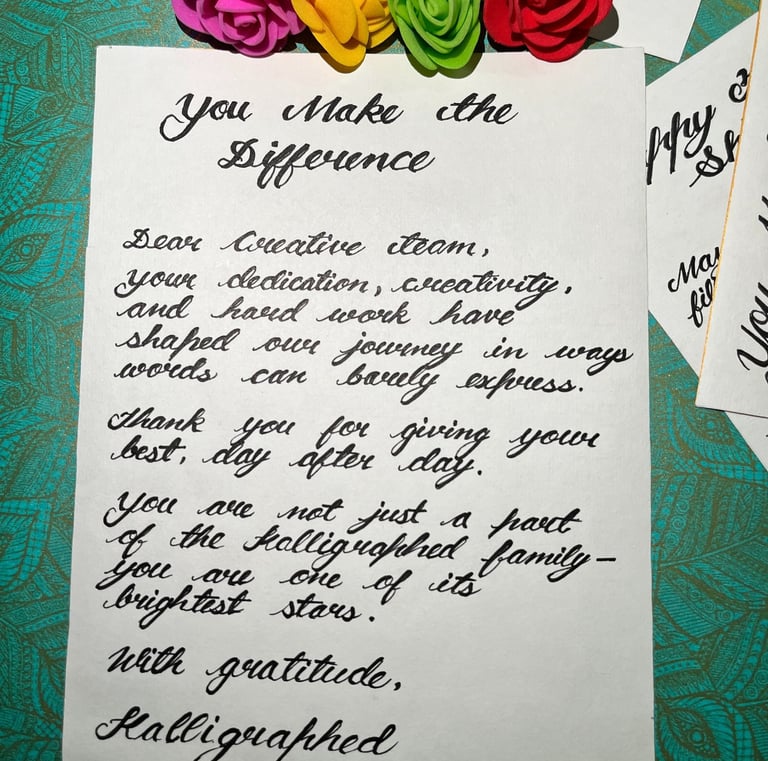 You Make the
Difference
Dear Creative team,
your dedication, creativity,
and hard work have
shaped our journey in ways
words can barely express.
Thank you for giving your
best, day after day.
You are not just a part
of the Kalligraphed family—
you are one of its
brightest stars.
With gratitude,
Kalligraphed
You